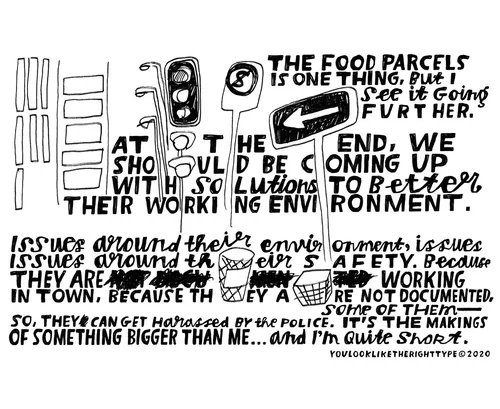 THE FOOD PARCELS
IS ONE THING, But I
See it Going
FURTHER.
AT THE END, WE
SHOULD BE COMING UP
WITH Solutions TO Better
THEIR WORKING ENVIRONMENT.
Issues around their environment, issues
Issues around their SAFETY. Because
THEY ARE WORKING
IN TOWN, BECAUSE THEY ARE NOT DOCUMENTED,
Some OF THEM—
SO, THEY CAN GET Harassed BY the POLICE. IT'S THE MAKINGS
OF SOMETHING BIGGER THAN ME... and I'm Quite Short.
YOULOOKLIKETHERIGHTTYPE©2020